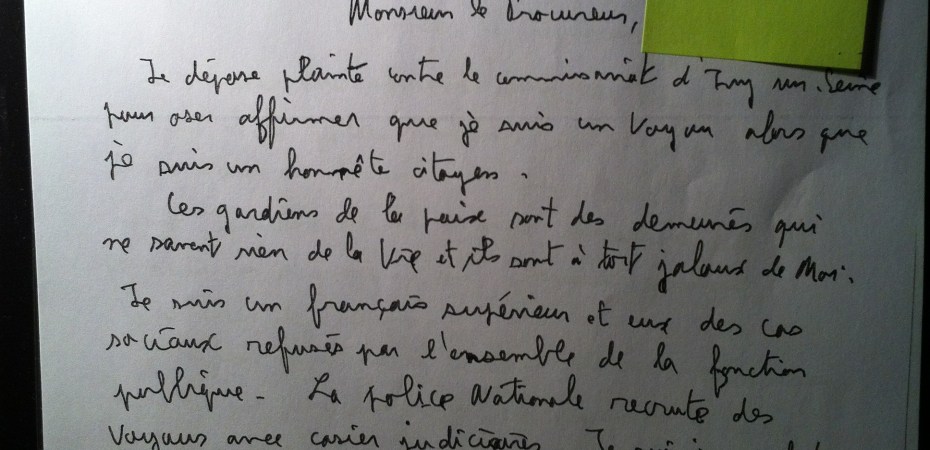 Monsieur le Procureur,
Je dépose plainte contre le commissariat d'Ivry sur Seine
pour oser affirmer que je suis un voyou alors que
je suis un honnête citoyen.
Les gardiens de la paix sont des demeurés qui
ne savent rien de la vie et ils sont à tort jaloux de Moi.
Je suis un français supérieur et eux des cas
sociaux refusés par l'ensemble de la fonction
publique. La police Nationale recrute des
voyous avec casier judiciaire. Je